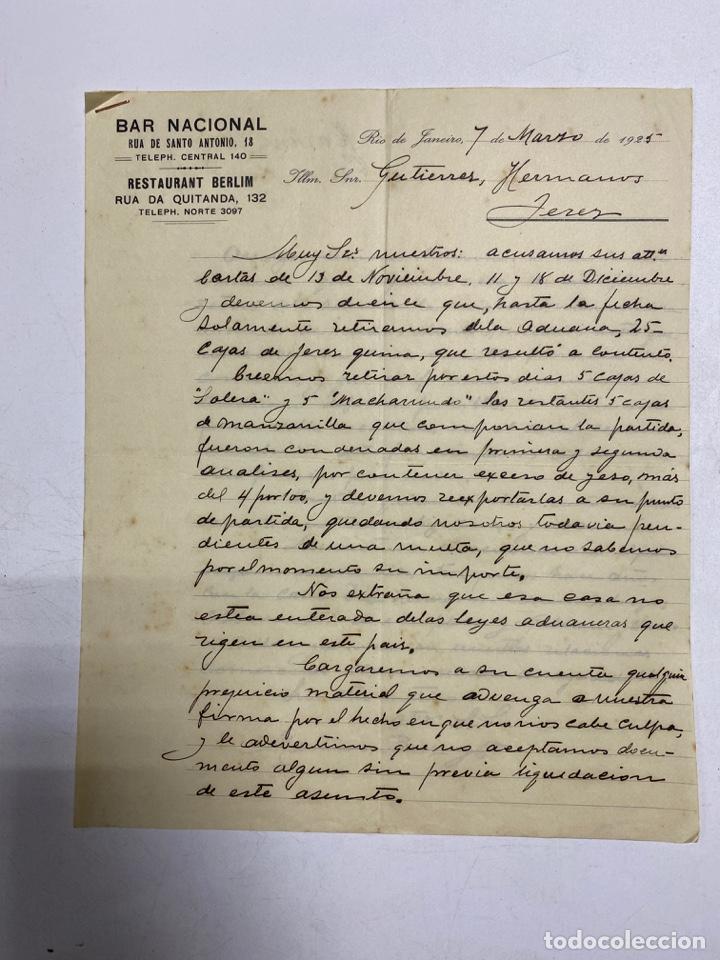 BAR NACIONAL
RUA DE SANTO ANTONIO, 18
TELEPH. CENTRAL 140
RESTAURANT BERLIM
RUA DA QUITANDA, 132
TELEPH. NORTE 3097
Rio de Janeiro, 7 de Marzo de 1925
Illm. Snr. Gutierrez, Hermanos
Jerez
Muy Srs nuestros: acusamos sus att.as
Cartas de 13 de Noviembre, 11 y 18 de Diciembre
y devemos dicirce que, hasta la ficha
Solamente retiramos dela Aduana, 25
Cajas de Jerez quina, que resultó a contento.
Creemos retirar por estos dias 5 cajas de
"Solera" y 5 "Macharnudo" las restantes 5 cajas
de Manzanilla que componian la partida,
fueron condenadas en primera y segunda
analises, por contener exceso de yeso, más
del 4 por 100, y devemos reexportarlas a su punto
de partida, quedando nosotros todavia pen-
dientes de una multa, que no sabemos
por el momento su importe.
Nos extraña que esa casa no
estea enterada delas leyes aduaneras que
rigen en este pais.
Cargaremos a su cuenta qualquier
prejuicio material que advenga a nuestra
firma por el hecho en que no nos cabe culpa,
y le adevertimos que no aceptamos docu-
mento algun sin previa liquidacion
de este asunto.
todocoleccion